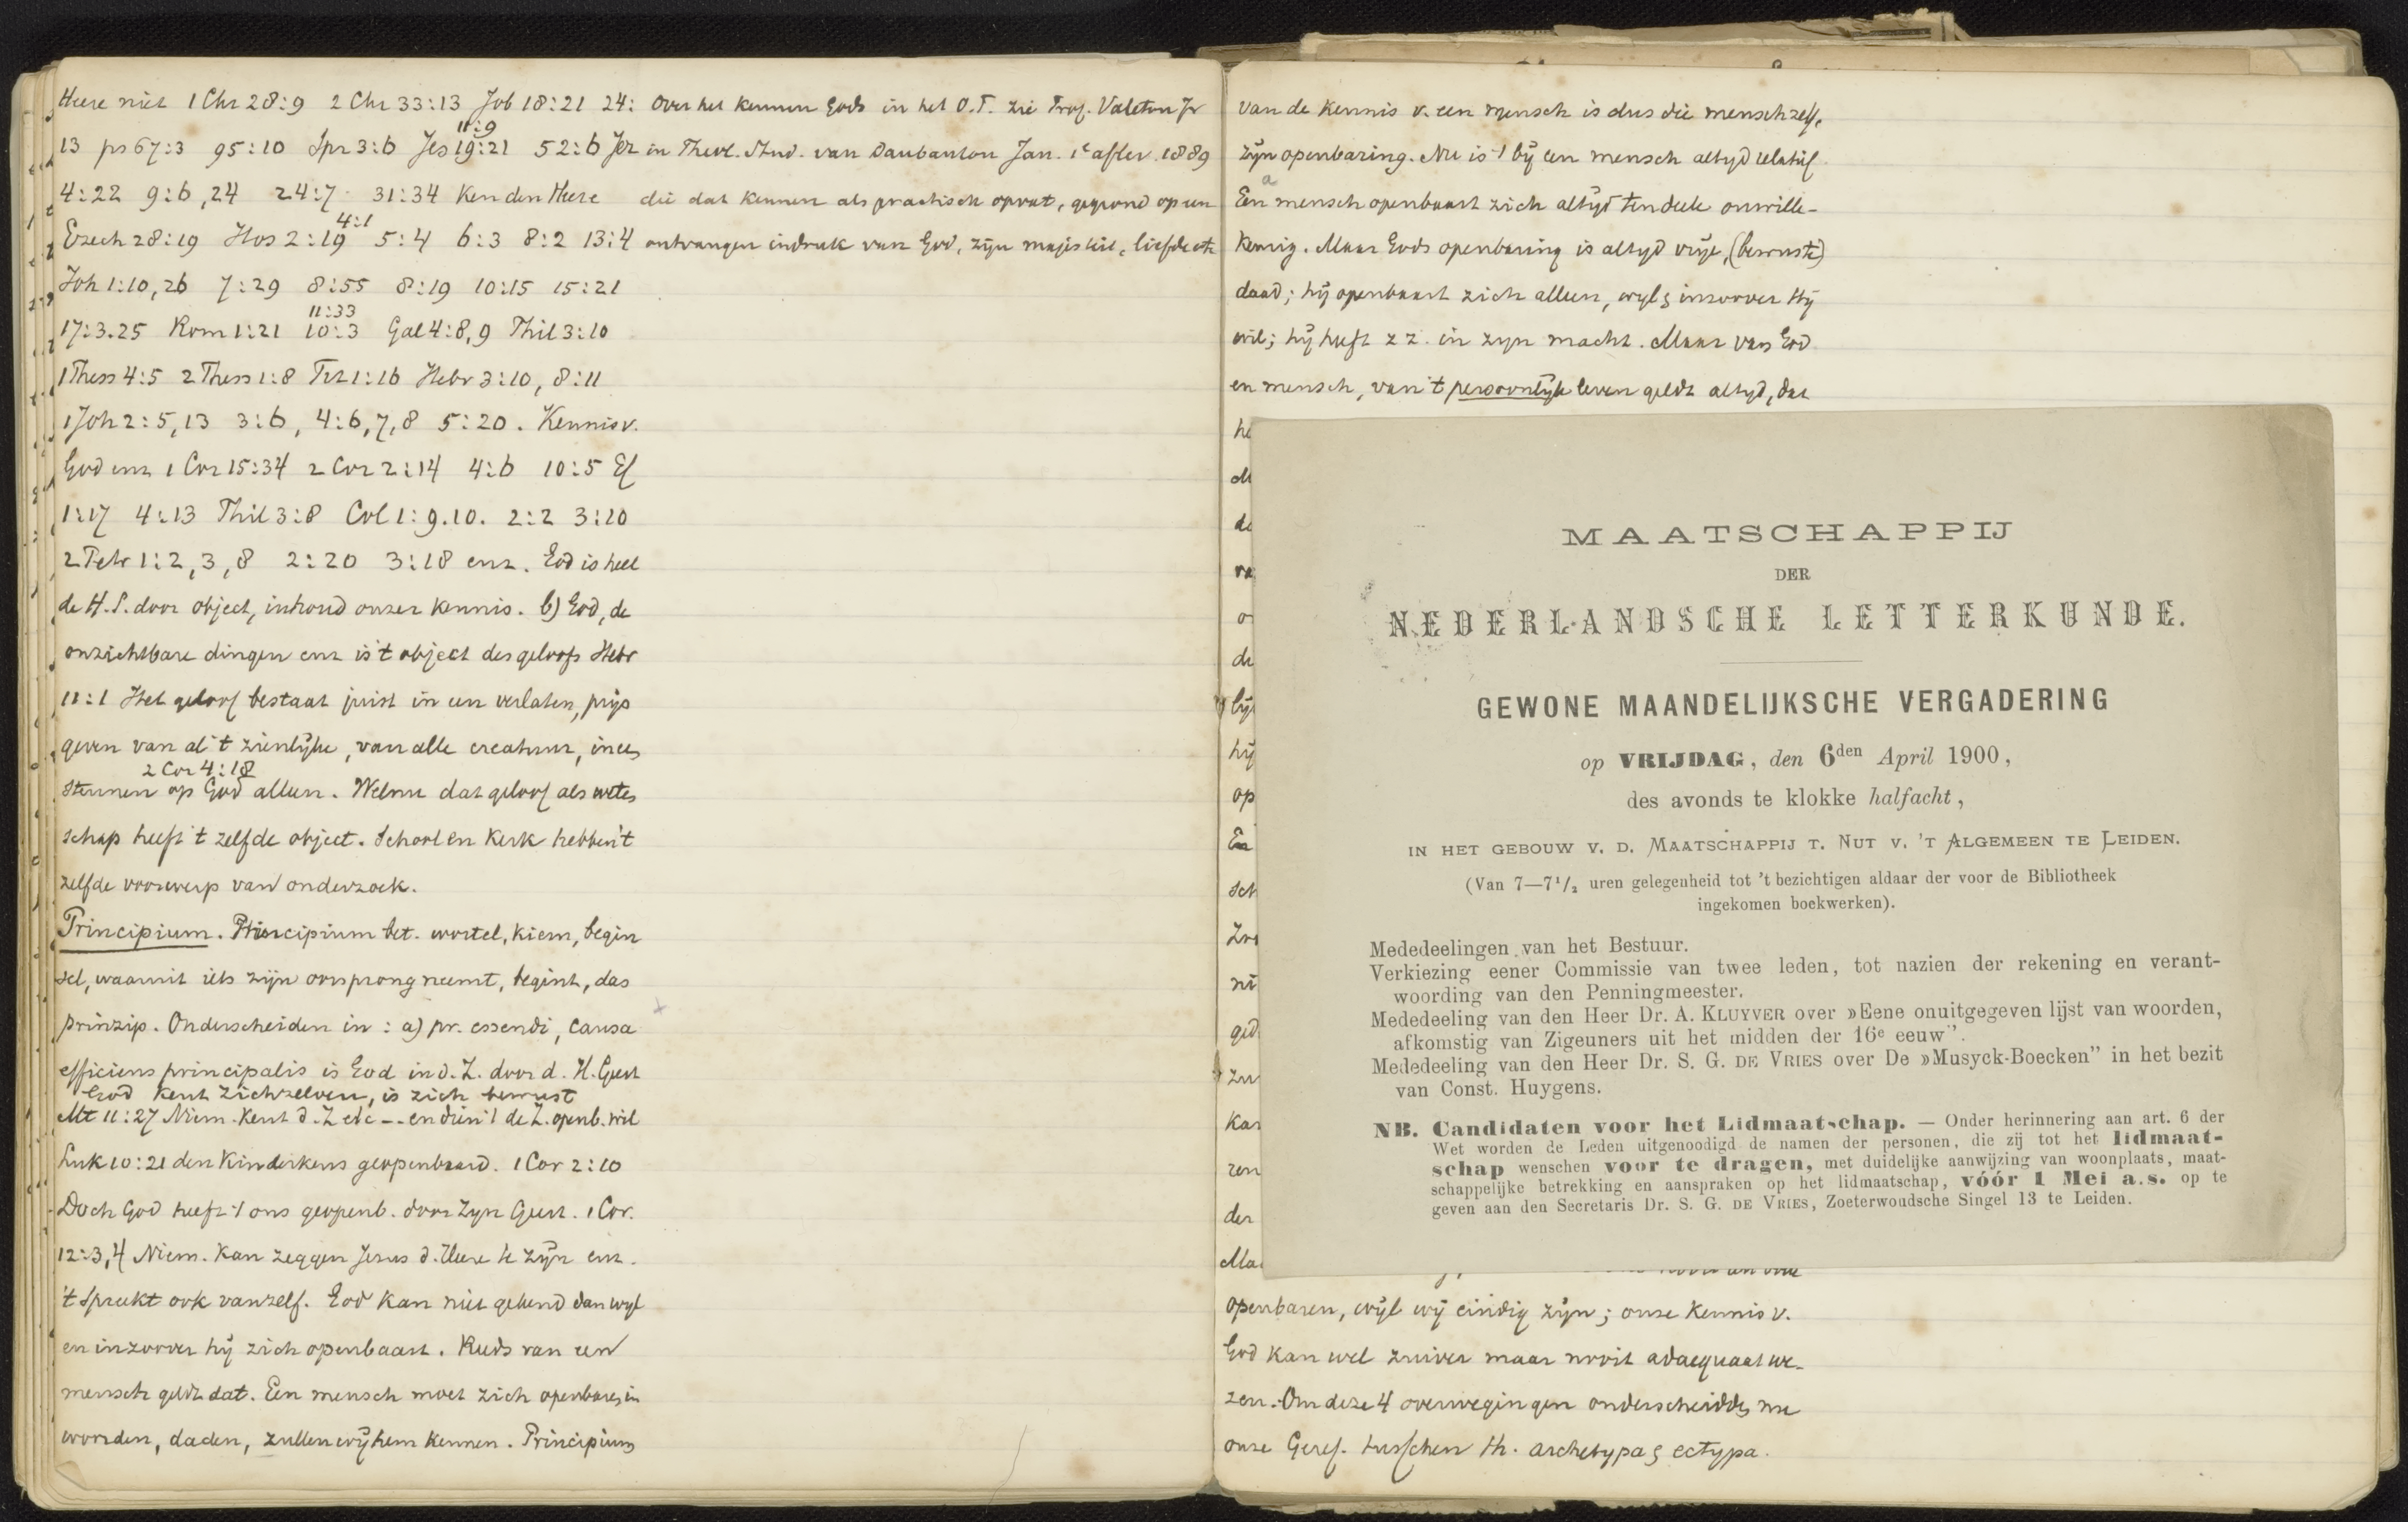 Heere niet 1 Chr 28:9 2 Chr 33:13 Job 18:21 24:
11:9
13 ps 67:3 95:10 Spr 3:6 Jes 19:21 52:6 Jer
4:22 9:6,24 24:7 31:34 Ken den Heere
4:1
Ezech 28:19 Hos 2:19 5:4 6:3 8:2 13:4
Joh 1:10,26 7:29 8:55 8:19 10:15 15:21
11:33
17:3.25 Rom 1:21 10:3 Gal 4:8,9 Phil 3:10
1 Thess 4:5 2 Thess 1:8 Tit 1:16 Hebr 3:10, 8:11
1 Joh 2:5,13 3:6, 4:6,7,8 5:20. Kennis v.
God enz 1 Cor 15:34 2 Cor 2:14 4:6 10:5 Ef
1:17 4:13 Phil 3:8 Col 1:9.10. 2:2 3:10
2 Petr 1:2,3,8 2:20 3:18 enz. God is heel
de H.S. door object, inhoud onzer kennis. b) God, de
onzichtbare dingen enz is 't object des geloofs Hebr
11:1 Het geloof bestaat juist in een verlaten, prijs
geven van al 't zienlijke, van alle creatuur, in een
2 Cor 4:18
steunen op God alleen. Welnu dat geloof als weten
schap heeft 't zelfde object. School en Kerk hebben 't
zelfde voorwerp van onderzoek.
Principium. Principium bet. wortel, kiem, begin
sel, waaruit iets zijn oorsprong neemt, begint, das
prinzip. Onderscheiden in: a) pr. essendi, causa
efficiens principalis is God in d. Z. door d. H. Geest
God kent zichzelven, is zich bewust
Mt 11:27 Niem. kent d. Z etc -- en dien 't de Z. openb. wil
Luk 10:21 den Kinderkens geopenbaard. 1 Cor 2:10
Doch God heeft 't ons geopenb. door Zyn Geest. 1 Cor.
12:3,4 Niem. kan zeggen Jezus d. Heere te zijn enz.
't Spreekt ook vanzelf. God kan niet gekend dan wyl
en inzoover hij zich openbaart. Reeds van een
mensch geldt dat. Een mensch moet zich openbaren in
woorden, daden, zullen wij hem kennen. Principium
Over het kennen Gods in het O.T. zie Prof. Valeton Jr
in Theol. Stud. van Daubanton Jan. 1e aflev. 1889
die dat kennen als practisch opvat, gegrond op een
ontvangen indruk van God, zijn majesteit, liefde etc
van de kennis v. een mensch is dus die mensch zelf,
zijn openbaring. Nu is 't bij een mensch altyd relatief.
a
Een mensch openbaart zich altyd tendeele onwille-
keurig. Maar Gods openbaring is altyd vrije, (bewuste)
daad; hij openbaart zich alleen, wyl & inzoover Hij
wil; hij heeft z z. in zyn macht. Maar van God
en mensch, van 't persoonlijke leven geldt altyd, dat
MAATSCHAPPIJ
DER
NEDERLANDSCHE LETTERKUNDE.
GEWONE MAANDELIJKSCHE VERGADERING
op VRIJDAG, den 6den April 1900,
des avonds te klokke halfacht,
IN HET GEBOUW V. D. MAATSCHAPPIJ T. NUT V. 'T ALGEMEEN TE LEIDEN.
(Van 7—7 1/2 uren gelegenheid tot 't bezichtigen aldaar der voor de Bibliotheek
ingekomen boekwerken).
Mededeelingen van het Bestuur.
Verkiezing eener Commissie van twee leden, tot nazien der rekening en verant-
woording van den Penningmeester.
Mededeeling van den Heer Dr. A. KLUYVER over »Eene onuitgegeven lijst van woorden,
afkomstig van Zigeuners uit het midden der 16e eeuw".
Mededeeling van den Heer Dr. S. G. DE VRIES over De »Musyck-Boecken" in het bezit
van Const. Huygens.
NB. Candidaten voor het Lidmaatschap. — Onder herinnering aan art. 6 der
Wet worden de Leden uitgenoodigd de namen der personen, die zij tot het lidmaat-
schap wenschen voor te dragen, met duidelijke aanwijzing van woonplaats, maat-
schappelijke betrekking en aanspraken op het lidmaatschap, vóór 1 Mei a.s. op te
geven aan den Secretaris Dr. S. G. DE VRIES, Zoeterwoudsche Singel 13 te Leiden.
openbaren, wijl wij eindig zijn; onze kennis v.
God kan wel zuiver maar nooit adaequaat we-
zen. Om deze 4 overwegingen onderscheidden nu
onze Geref. tusschen th. archetypa & ectypa.